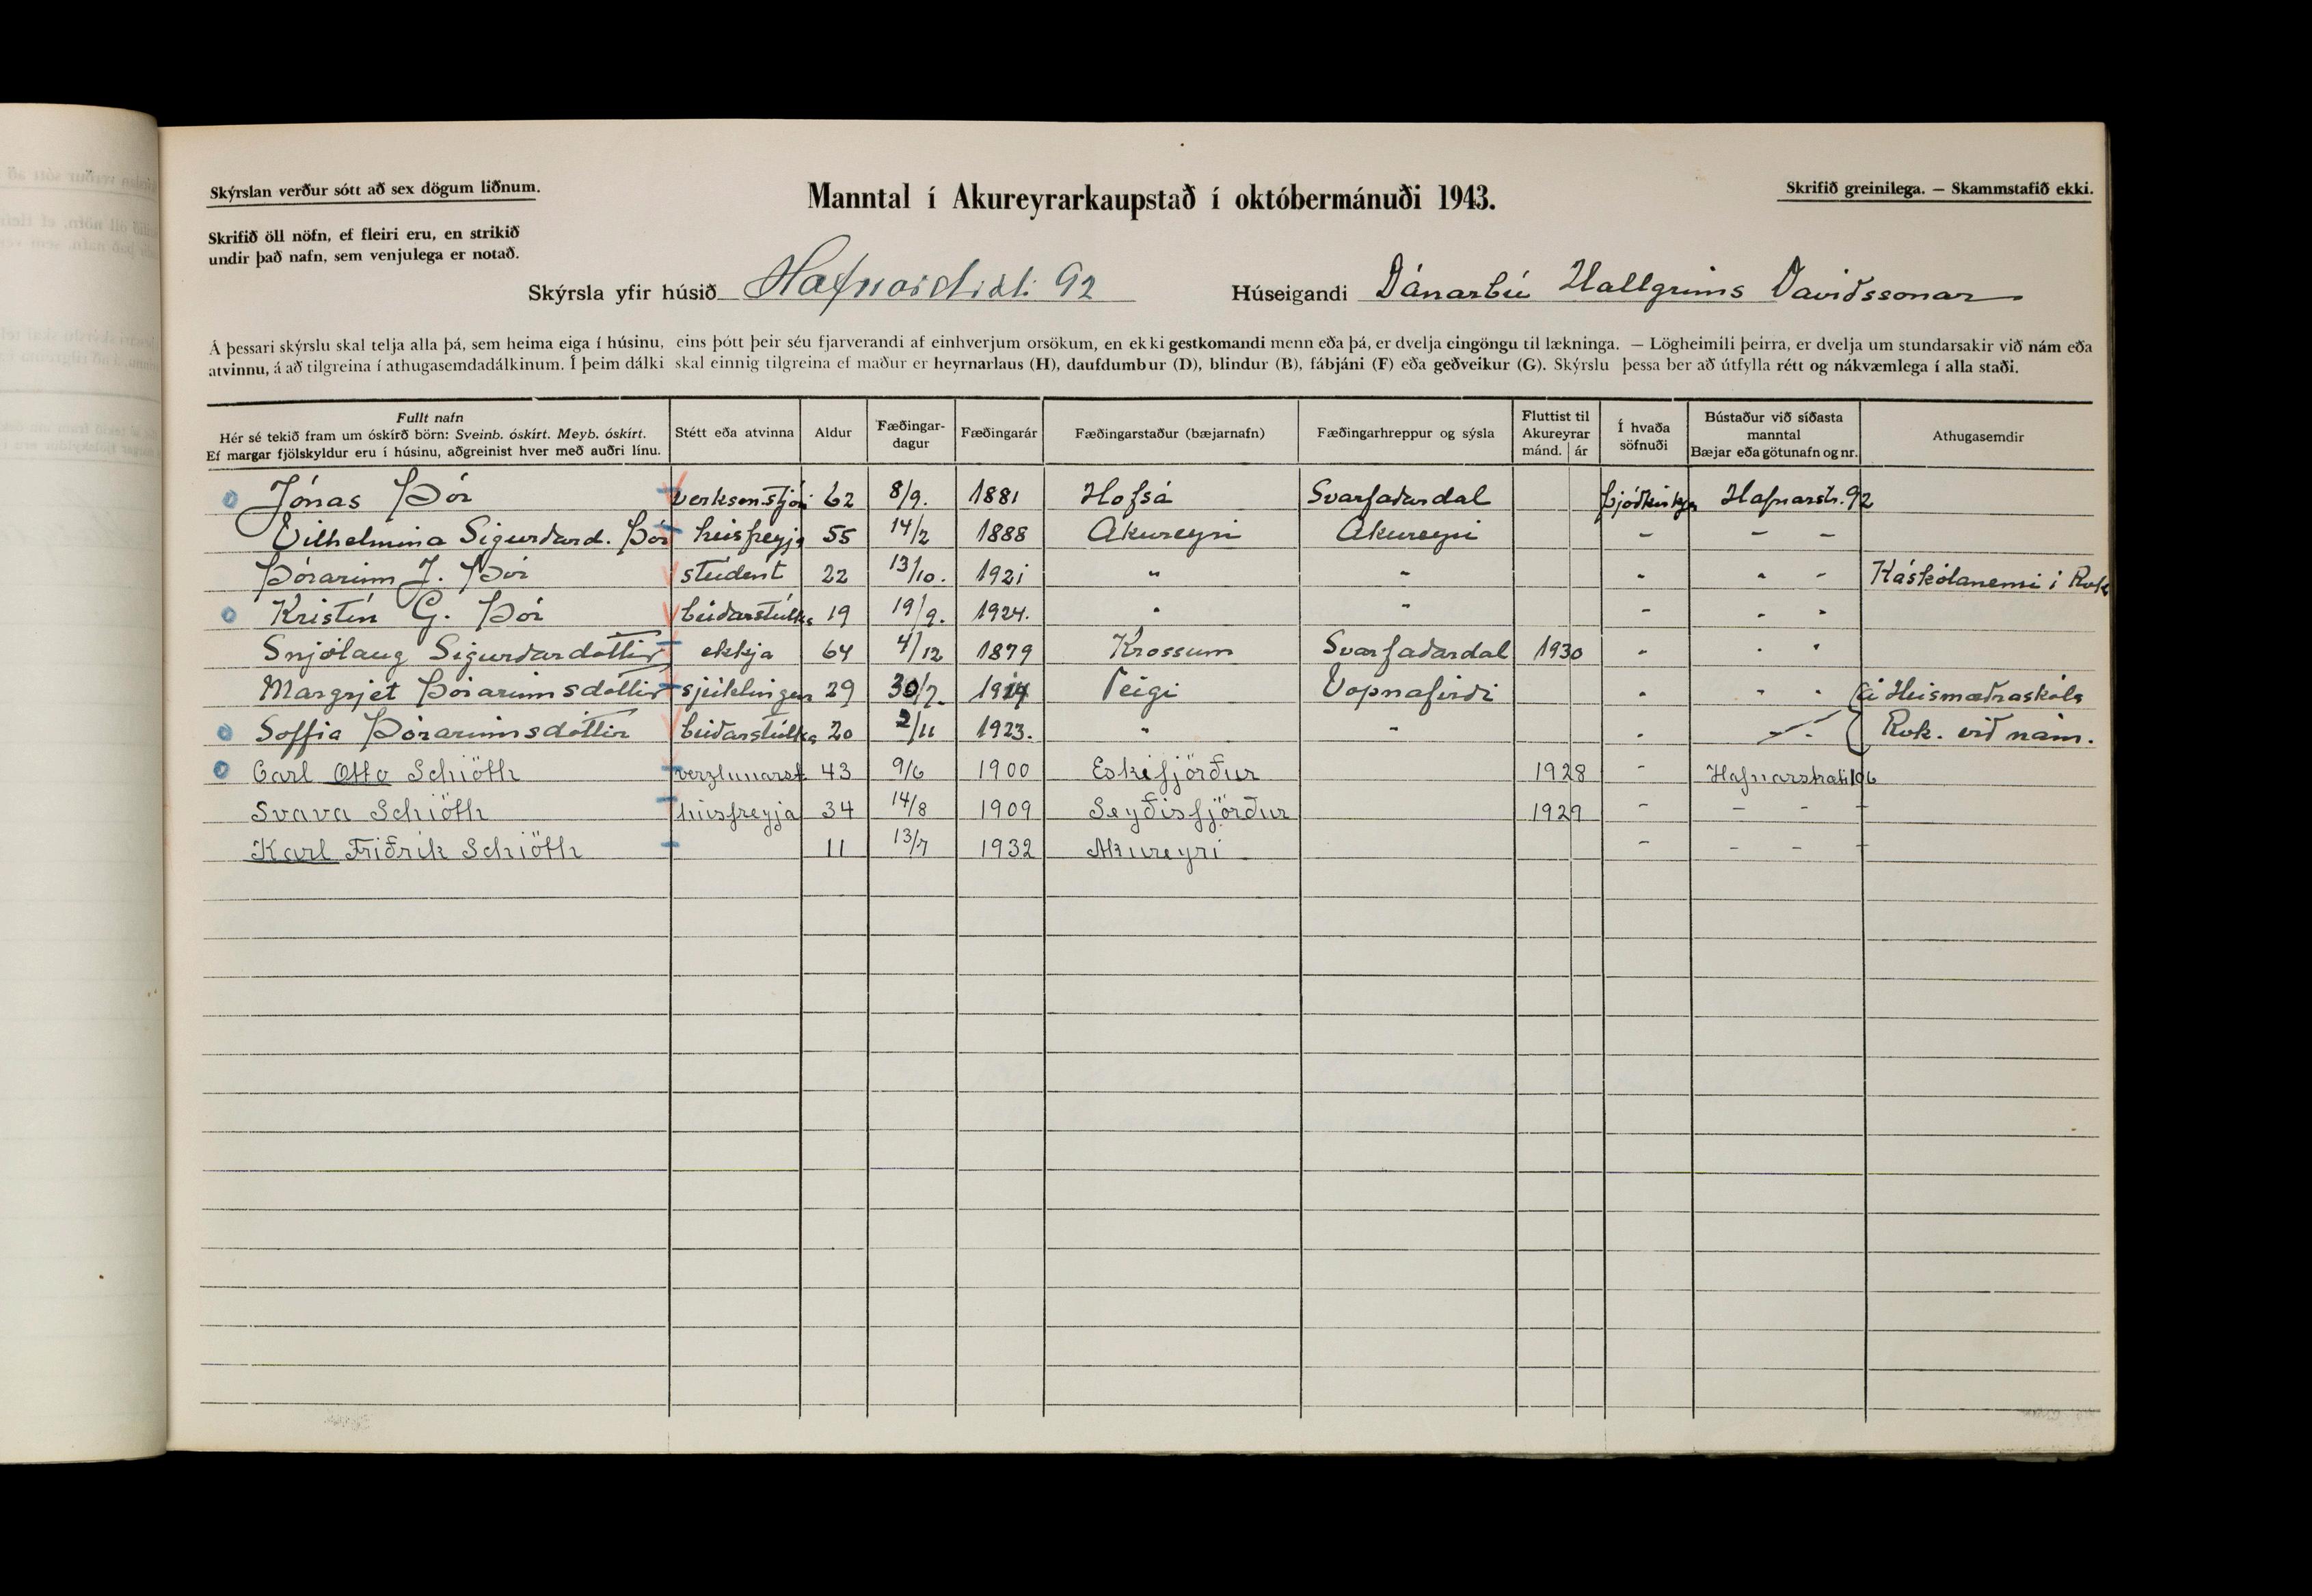 Skýrslan verður sótt að sex dögum liðnum.
Manntal í Akureyrarkaupstað í októbermánuði 1943.
Skrifið greinilega. — Skammstafið ekki.
Skrifið öll nöfn, ef fleiri eru, en strikið
undir það nafn, sem venjulega er notað.
Skýrsla yfir húsið Hafnarstr. 92 Húseigandi Dánarbú Hallgrims Davíðssonar
Á þessari skýrslu skal telja alla þá, sem heima eiga í húsinu, eins þótt þeir séu fjarverandi af einhverjum orsökum, en ekki gestkomandi menn eða þá, er dvelja eingöngu til lækninga. — Lögheimili þeirra, er dvelja um stundarsakir við nám eða
atvinnu, á að tilgreina í athugasemdadálkinum. Í þeim dálki skal einnig tilgreina ef maður er heyrnarlaus (H), daufdumbur (D), blindur (B), fábjáni (F) eða geðveikur (G). Skýrslu þessa ber að útfylla rétt og nákvæmlega í alla staði.
Fullt nafn
Hér sé tekið fram um óskírð börn: Sveinb. óskírt. Meyb. óskírt.
Ef margar fjölskyldur eru í húsinu, aðgreinist hver með auðri línu.
Stétt eða atvinna
Aldur
Fæðingar-
dagur
Fæðingarár
Fæðingarstaður (bæjarnafn)
Fæðingarhreppur og sýsla
Fluttist til
Akureyrar
mánd. | ár
Í hvaða
söfnuði
Bústaður við síðasta
manntal
Bæjar eða götunafn og nr.
Athugasemdir
Jónas Þór verksm.stjóri 62 8/9. 1881 Hofsá Svarfaðardal Þjóðkirkja Hafnarstr. 92
Vilhelmina Sigurðard. Þór húsfreyja 55 14/2 1888 Akureyri Akureyri - - -
Þórarinn J. Þór stúdent 22 13/10. 1921 " " " " - Háskólanemi í Rvk
Kristín G. Þór búðarstúlka 19 19/9. 1924. " " - " "
Snjólaug Sigurðardóttir ekkja 64 4/12 1879 Krossum Svarfaðardal 1930 " " "
Margrjet Þórarinsdóttir sjúklingur 29 30/7. 1914 Teigi Vopnafirði " " " (á Húsmæðraskóla
Soffia Þórarinsdóttir búðarstúlka 20 2/11 1923. " " " - " Rvk. við nám.
Carl Otto Schiöth verzlunarst 43 9/6 1900 Eskifjörður 1928 - Hafnarstræti 106
Svava Schiöth húsfreyja 34 14/8 1909 Seyðisfjörður 1929 - - - -
Karl Friðrik Schiöth 11 13/7 1932 Akureyri - - - -